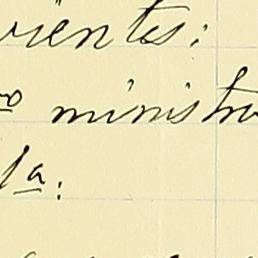 vientes:
o ministra
la: